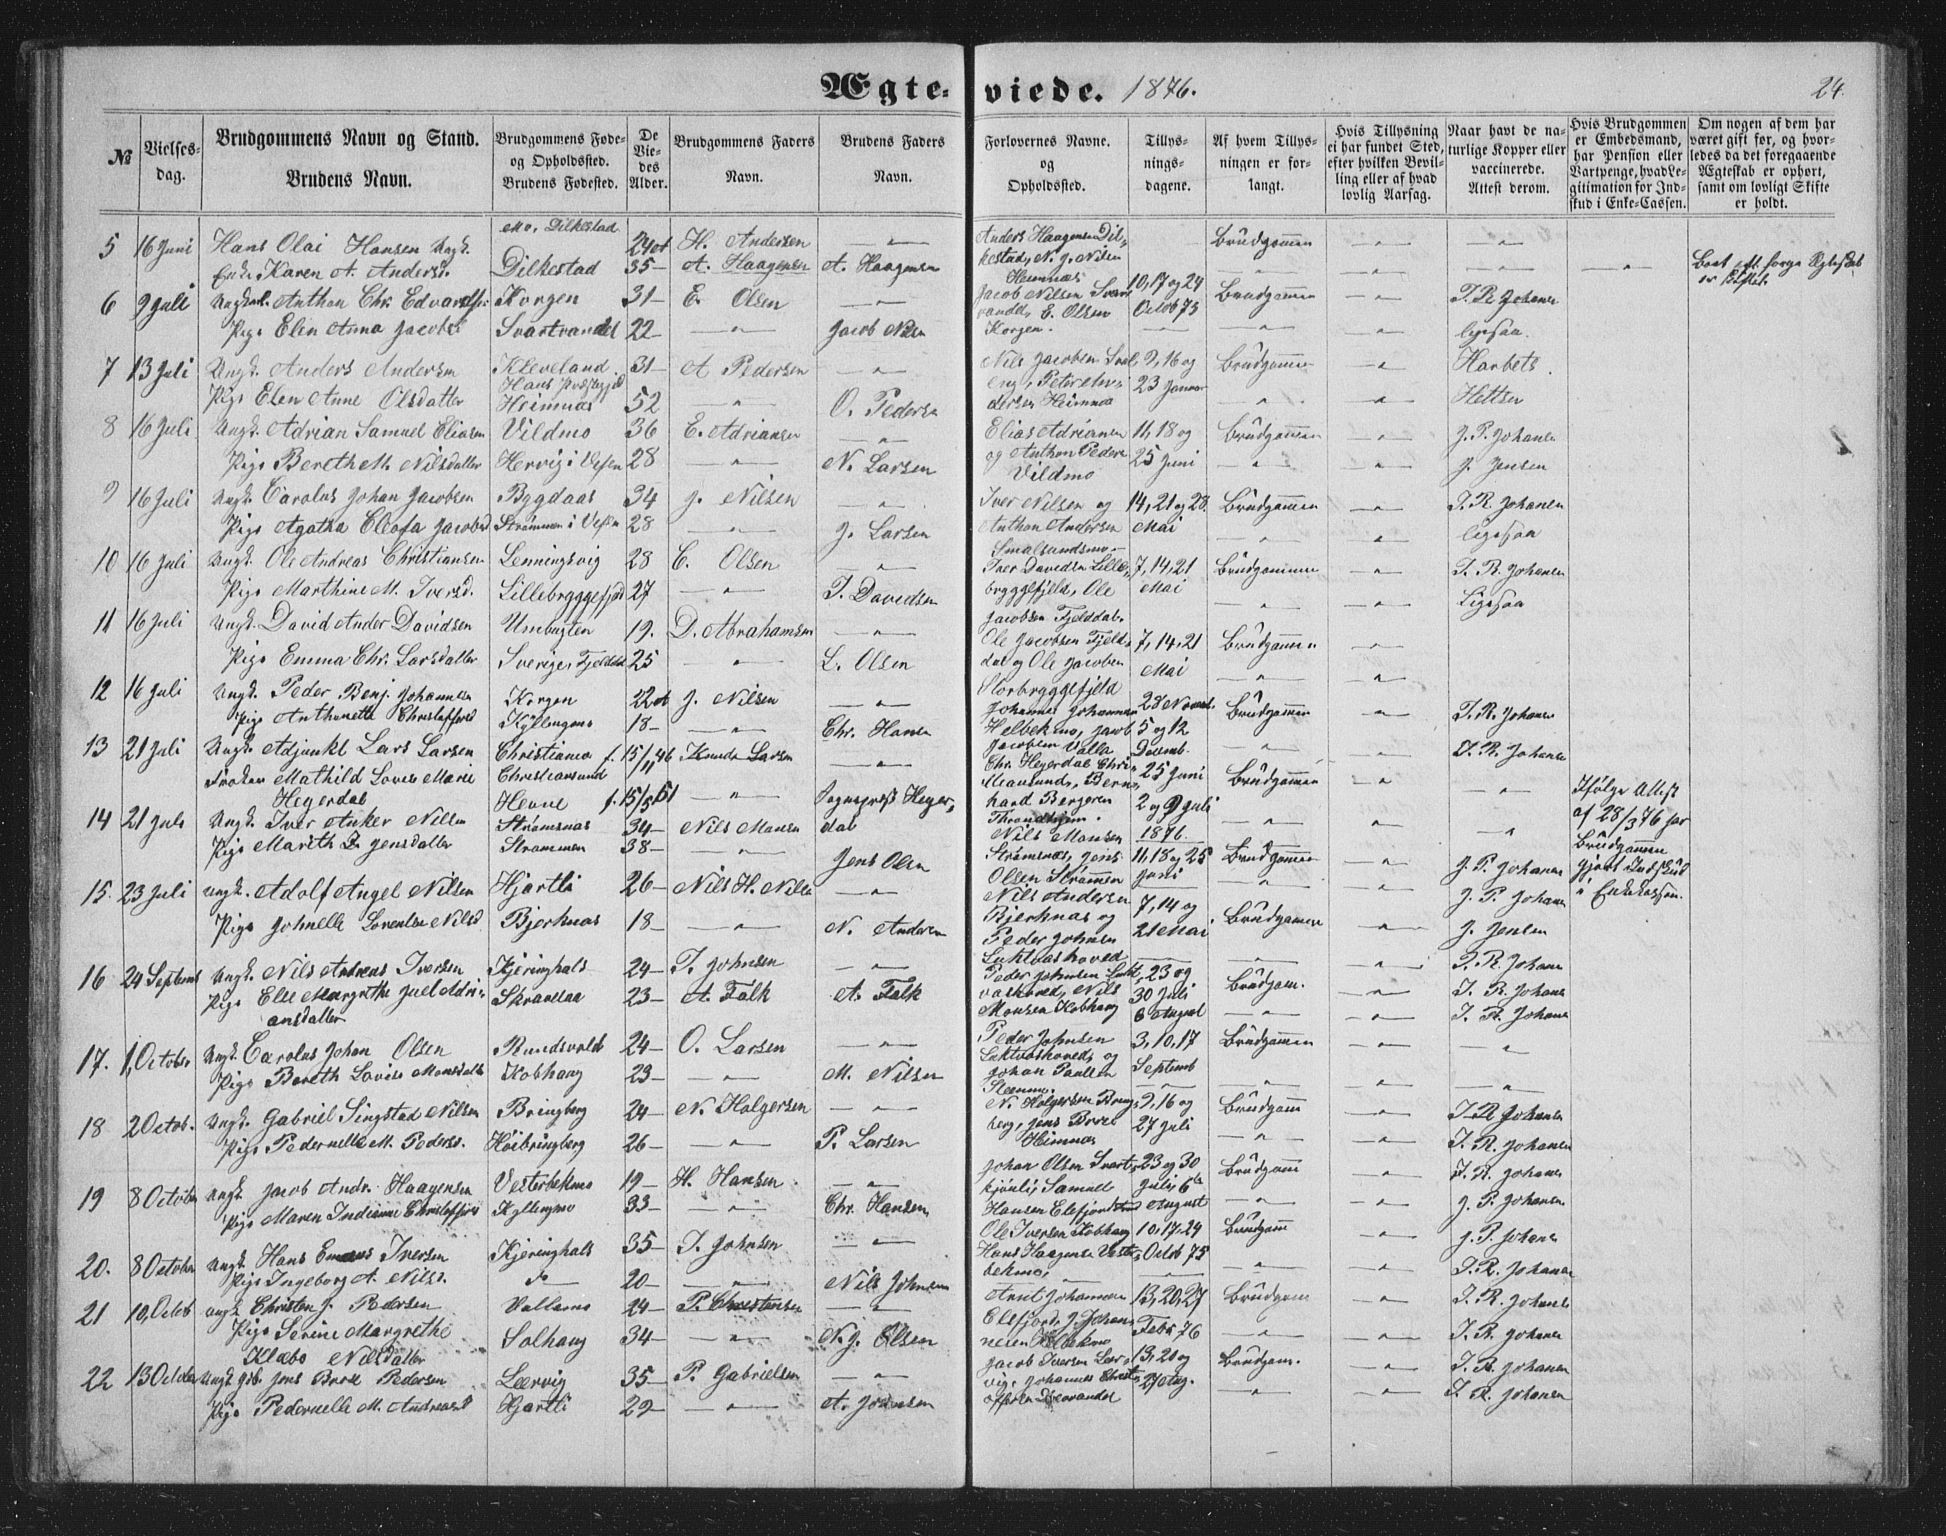 Ægte-
viede. 1876.
24.
№
Vielses-
dag.
Brudgommens Navn og Stand.
Brudens Navn.
Brudgommens Føde-
og Opholdssted.
Brudens Fødested.
De
Vie-
des
Alder.
Brudgommens Faders
Navn.
Brudens Faders
Navn.
Forlovernes Navne.
og
Opholdssted.
Tillys-
nings-
dagene.
Af hvem Tillys-
ningen er for-
langt.
Hvis Tillysning
ei har fundet Sted,
efter hvilken Bevil-
ling eller af hvad
lovlig Aarsag.
Naar havt de na-
turlige Kopper eller
vaccinerede.
Attest derom.
Hvis Brudgommen
er Embedsmand,
har Pension eller
Vartpenge, hvad Le-
gitimation for Ind-
skud i Enke-Cassen.
Om nogen af dem har
været gift før, og hvor-
ledes da det foregaaende
Ægteskab er ophørt,
samt om lovligt Skifte
er holdt.
5 16 Juni Hans Olai Hansen Ungk. Mo, Dilkestad 24 H. Andersen Anders Haagensen Dil- Brudgommen
Enk. Karen A. Andersd. Dilkestad 35 A. Haagensen A. Haagensen kestad, N. J. Nilsen
Heimnæs
6 9 Juli Ungkarl Anthon Chr. Edvardsen Korgen 31 E. Olsen Jacob Nilsen Svart- 10, 17 og 24 Brudgommen
Pige Elen Anna Jacobsd Svartvandet 22 Jacob Nilsen vandet, E. Olsen Octob 75
Korgen. ligesaa.
7 13 Juli Ungk. Anders Andersen Kleveland 31 A. Pedersen Nils Jacobsen 9, 16 og Brudgommen
Pige Elen Anne Olsdatter Heimnæs 52 O. Pedersen 23 Januar
8 16 Juli Ungk. Adrian Samuel Eliasen Vildmo 36 E. Adriansen Elias Adriansen 11, 18 og Brudgommen J. P. Johansen
Pige Bereth M. Nilsdatter Hervig i Vefsen 28 N. Larsen og Anthon Peders 25 Juni J. Jensen
Vildmo
9 16 Juli Ungk. Carolus Johan Jacobsen Bygdaas 34 J. Nilsen Iver Nilsen og 14, 21 og 28 Brudgommen J. R. Johansen
Pige Agatha Eleofa Jacobsd Strømmen i Vefsn 28 J. Larsen Anthon Andersen Mai ligesaa
Smalsundsmo
10 16 Juli Ungk. Ole Andreas Christiansen Lenningsvig 28 C. Olsen Iver Davidsen Lille- 7, 14, 21 Brudgommen J. R. Johansen
Pige Marthine M. Iversd. Lillebryggefjeld 27 I. Davidsen bryggfjeld, Ole Mai Ligesaa
Jacobsen Fjelddal.
11 16 Juli Ungk. David Ander Davidsen Umbugten 19. D. Abrahamsen Ole Jacobsen Fjeld- 7, 14, 21 Brudgommen
Pige Emma Chr. Larsdatter Sverige, Fjelddal 25 L. Olsen dal og Ole Jacobsen Mai
Storbryggfjeld
12 16 Juli Ungk. Peder Benj. Johannesen Korgen 22 J. Nilsen Johannes Johannesen 28 Novemb. Brudgommen J. R. Johansen
Pige Anthonette Christoffersd Kyllingmo 18 Chr. Hansen Helbekmo, Jacob 5 og 12
Jacobsen Valla Decemb. J. R. Johansen
13 21 Juli Ungk. Adjunkt Lars Larsen Christiania f. 15/11 46 Knud Larsen Chr. Hegerdal Chri- 25 Juni Brudgommen
Frøken Mathild Lovise Marie Christiansund
Hegerdal Hevne f. 15/8 51 Sogneprest Heger- hard Bergeren 2 og 9 Juli Ifølge Attest
dal Throndhjem. 1876. af 28/3 76 har
Brudgommen
gjort Indskud
i Enkekassen.
14 21 Juli Ungk. Iver Anker Nilsen Strømsnæs 34 Nils Monsen Nils Monsen
Pige Mareth Jensdatter Strømmen 38 Jens Olsen Strømsnæs, Jens 11, 18 og 25 Brudgommen J. P. Johansen
Olsen Strømmen Juni J. P. Johansen
15. 23 Juli Ungk. Adolf Angel Nilsen Hjartli 26 Nils H. Nilsen Nils Andersen 7, 14 og
Pige Johnelle Lorentse Nilsd Bjerknæs 18 N. Andersen Bjerknæs og 21 Mai Brudgommen J. Jensen
Peder Johnsen
Luktvashoved J. R. Johansen
16 24 Septemb Ungk. Nils Andreas Iversen Kjeringhals 24 I. Johnsen Peder Johnsen Lukt- 23 og Brudgom.
Pige Else Margrethe Juel Adri- Skravlaa 23 A. Falk A. Falk vashoved, Nils 30 Juli J. R. Johansen
ansdatter Monsen Kobhaug 6 August J. R. Johansen
17. 1, October Ungk. Carolus Johan Olsen Rundsvold 24 O. Larsen Peder Johnsen 3, 10, 17 Brudgommen
Pige Bereth Lovise Monsdatter Kobhaug 23 M. Nilsen Luktvashoved og Septemb
Johan Paulsen
18 2 Octob. Ungk. Gabriel Singstad Nilsen Bringberg 24 N. Holgersen N. Holgersen Bring- 9, 16 og Brudgom J. R. Johansen
Pige Pedernelle M. Pedersd. Høibringberg 26 P. Larsen berg, Jens 27 Juli J. R. Johansen
Heimnæs
19 8 October Ungk. Jacob Andr. Haagensen Vesterbekmo 19 H. Hansen Johan Olsen Svart- 23 og 30 Brudgom J. R. Johansen
Pige Maren Indianne Christoffersd Kyllingmo 33 Chr. Hansen Samuel Juli, 6te August J. P. Johansen
Hansen Elsfjord
20. 8 October Ungk. Hans Iversen Kjeringhals 35 I. Johnsen Ole Iversen Kobhaug 10, 17, 24 Brudgom J. P. Johansen
Pige Ingeborg A. Nilsd. 20 Nils Johnsen Hans Haagensen Vester- Octob 75 J. R. Johansen
bekmo,
21 10, Octob Ungk Christen J. Pedersen Vallamo 24 P. Christensen Arnt Johansen 13, 20, 27 Brudgom J. R. Johansen
Pige Serine Margrethe Solhaug 34 N. J. Olsen Elsfjord, J. Johan- Febr 76 J. R. Johansen
Klæbo Nilsdatter
22 13 October Ungk. Gab. Jens Pedersen Leervig 35 P. Gabrielsen Jacob Iversen Leer- 13, 20 og Brudgom. J. R. Johansen
Pige Pedernelle M. Andreasd Hjartli 29 A. Johnsen vig, Johannes Christ- 27 Aug. J. R. Johansen